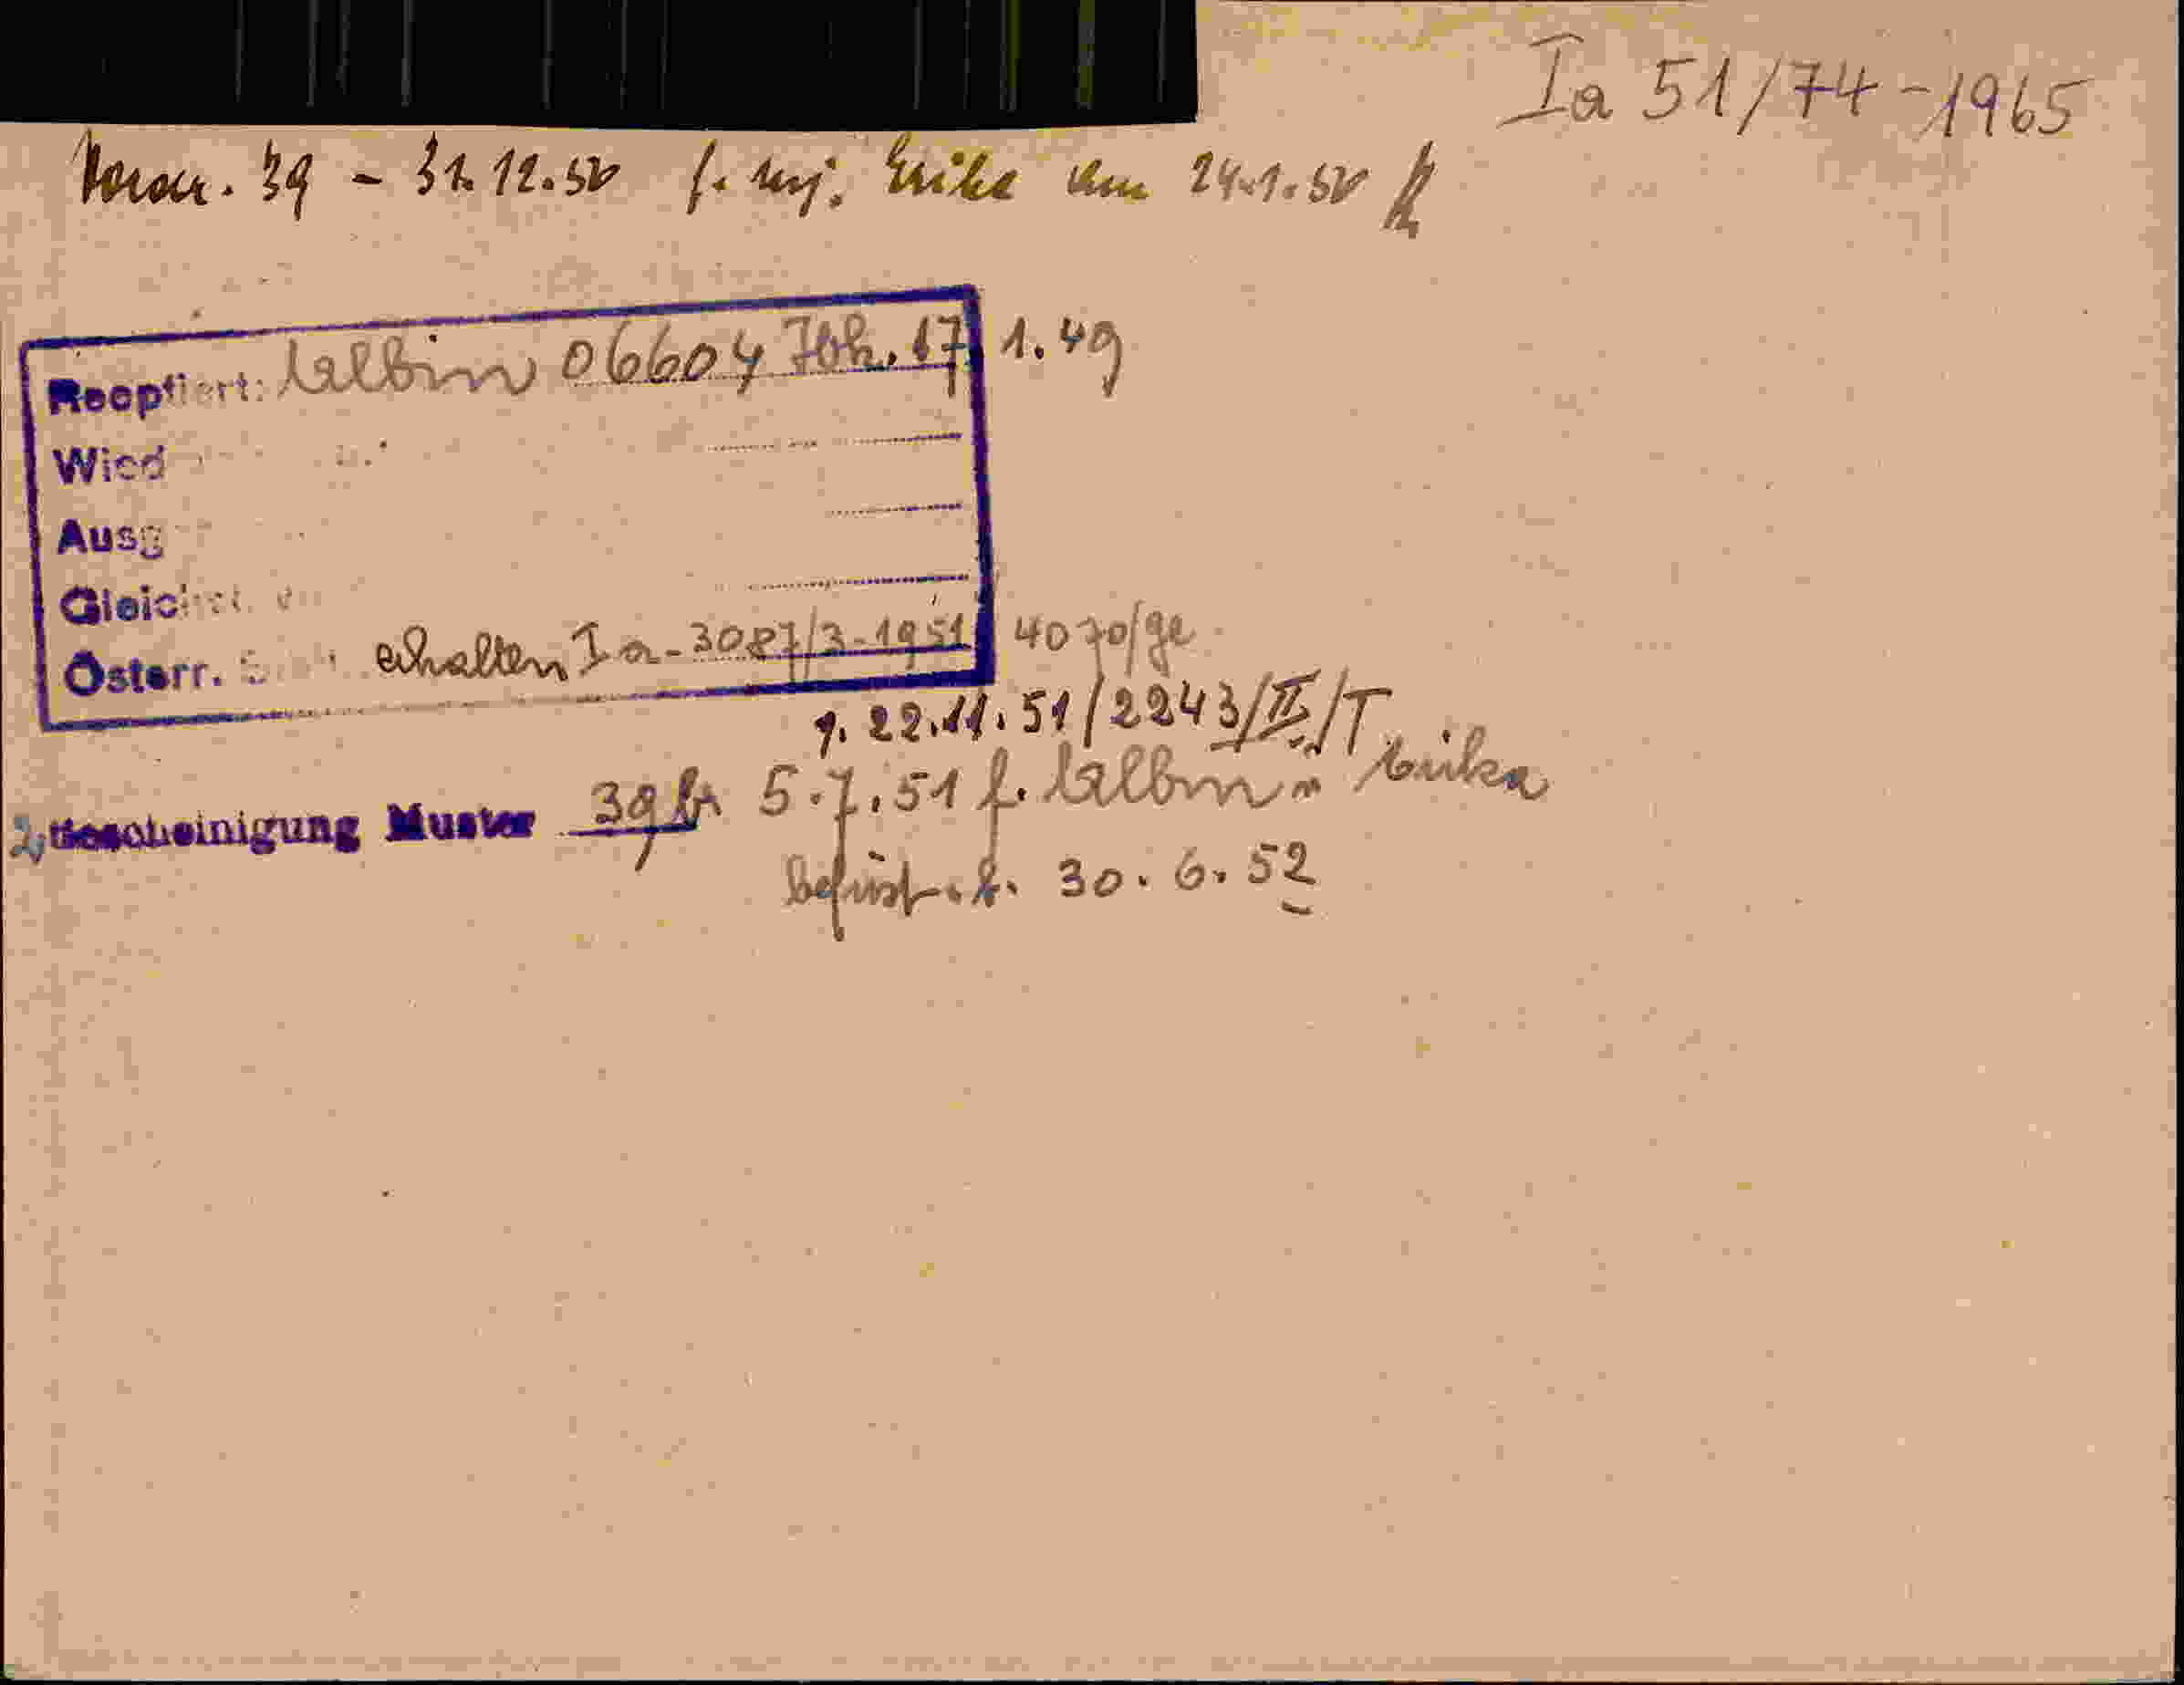 Ia 51/74-1965
39 - 31.12.50 f. mj. Erika am 24.1.50
Reoptiert: Albin 06604 Ibk. 17. 1. 49
Wied
Ausg
Gleich
Österr. erhalten Ia-3087/3-1951 4070/ge
1. 22.11.51/2243/II/T
2, Bescheinigung Muster 39 br 5.7.51 f. Albin u. Erika
befrist. b. 30.6.52